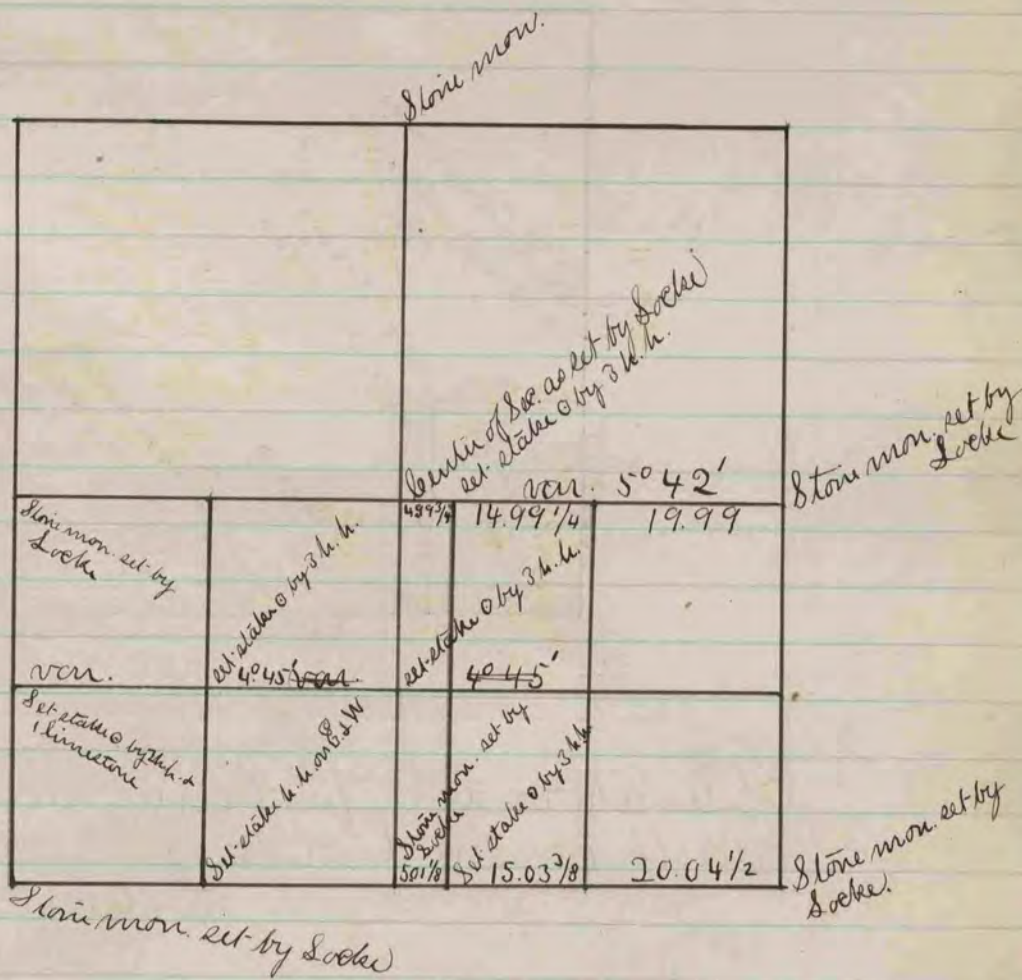 Stone mon.
Center of Sec. as set by Locke
set stake o by 3 h.h.
var. 5° 42'
Stone mon. set by
Locke
Stone mon. set by
Locke
set stake o by 3 h.h.
499 3/4
14.99 1/4
19.99
set stake o by 3 h.h.
var.
4° 45' var.
4° 45'
Set stake o by 2 h.h. &
1 limestone
Set stake h.h. on E & W
Stone mon. set by
Locke
Set stake o by 3 h.h.
501 1/8
15.03 3/8
20.04 1/2
Stone mon. set by
Locke.
Stone mon. set by Locke